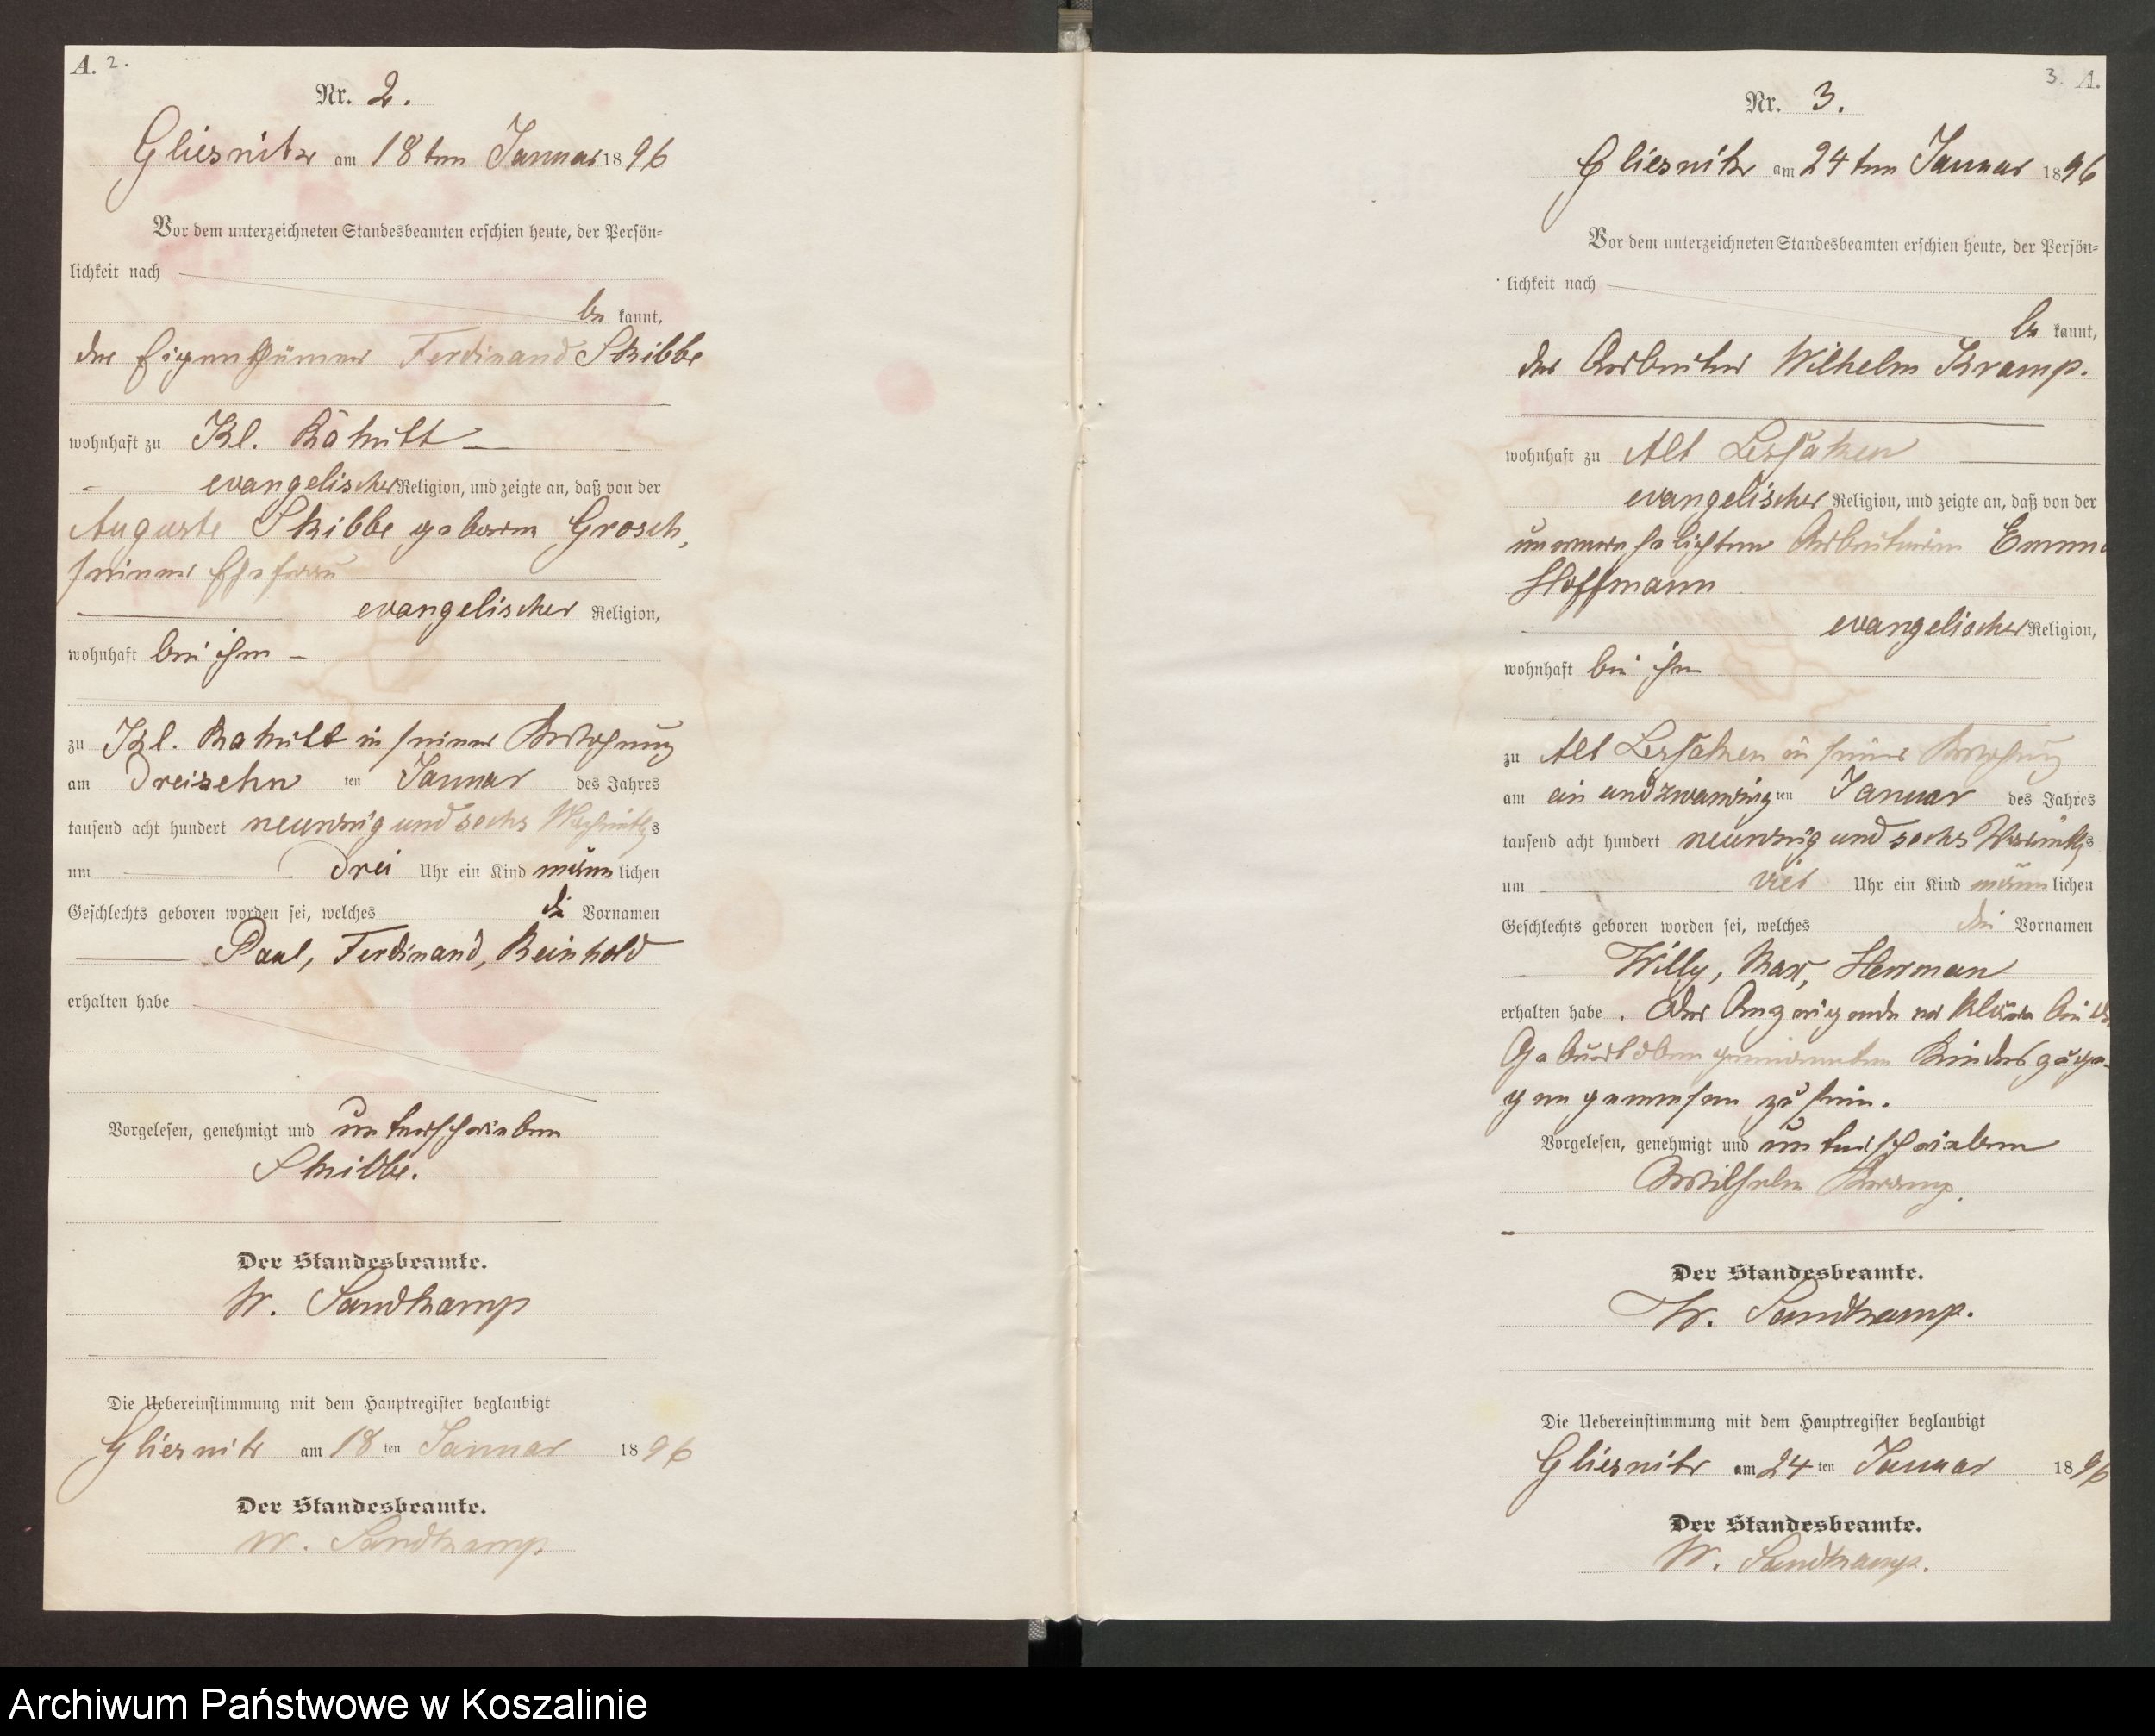 A. 2.
Nr. 2.
Gliesnitz am 18ten Januar 1896
Vor dem unterzeichneten Standesbeamten erschien heute, der Persön=
lichkeit nach
be kannt,
der Eigenthümer Ferdinand Skibbe
wohnhaft zu Kl.
evangelischer Religion, und zeigte an, daß von der
Auguste Skibbe geboren Grosch,
seiner Ehefrau
evangelischer Religion,
wohnhaft bei ihm
zu Kl. in seiner Wohnung
am Dreizehn ten Januar des Jahres
tausend acht hundert neunzig und sechs Nachmittags
um Drei Uhr ein Kind männlichen
Geschlechts geboren worden sei, welches die Vornamen
Paul, Ferdinand, Reinhold
erhalten habe
Vorgelesen, genehmigt und unterschrieben
Skibbe.
Der Standesbeamte.
W. Sandkamp
Die Uebereinstimmung mit dem Hauptregister beglaubigt
Gliesnitz am 18 ten Januar 1896
Der Standesbeamte.
W. Sandkamp
3. A.
Nr. 3.
Gliesnitz am 24ten Januar 1896
Vor dem unterzeichneten Standesbeamten erschien heute, der Persön=
lichkeit nach
be kannt,
der Arbeiter Wilhelm Kramp.
wohnhaft zu Alt
evangelischer Religion, und zeigte an, daß von der
unverehelichten Arbeiterin Emma
Hoffmann
evangelischer Religion,
wohnhaft bei ihm
zu Alt in seiner Wohnung
am ein und zwanzig ten Januar des Jahres
tausend acht hundert neunzig und sechs Vormittags
um vier Uhr ein Kind männlichen
Geschlechts geboren worden sei, welches die Vornamen
Willy, Max, Herrman
erhalten habe. Der Anzeigende erklärte bei der
Geburt oben genannten Kindes zuge-
gen gewesen zu sein.
Vorgelesen, genehmigt und unterschrieben
Wilhelm Kramp.
Der Standesbeamte.
W. Sandkamp.
Die Uebereinstimmung mit dem Hauptregister beglaubigt
Gliesnitz am 24 ten Januar 1896
Der Standesbeamte.
W. Sandkamp.
Archiwum Państwowe w Koszalinie